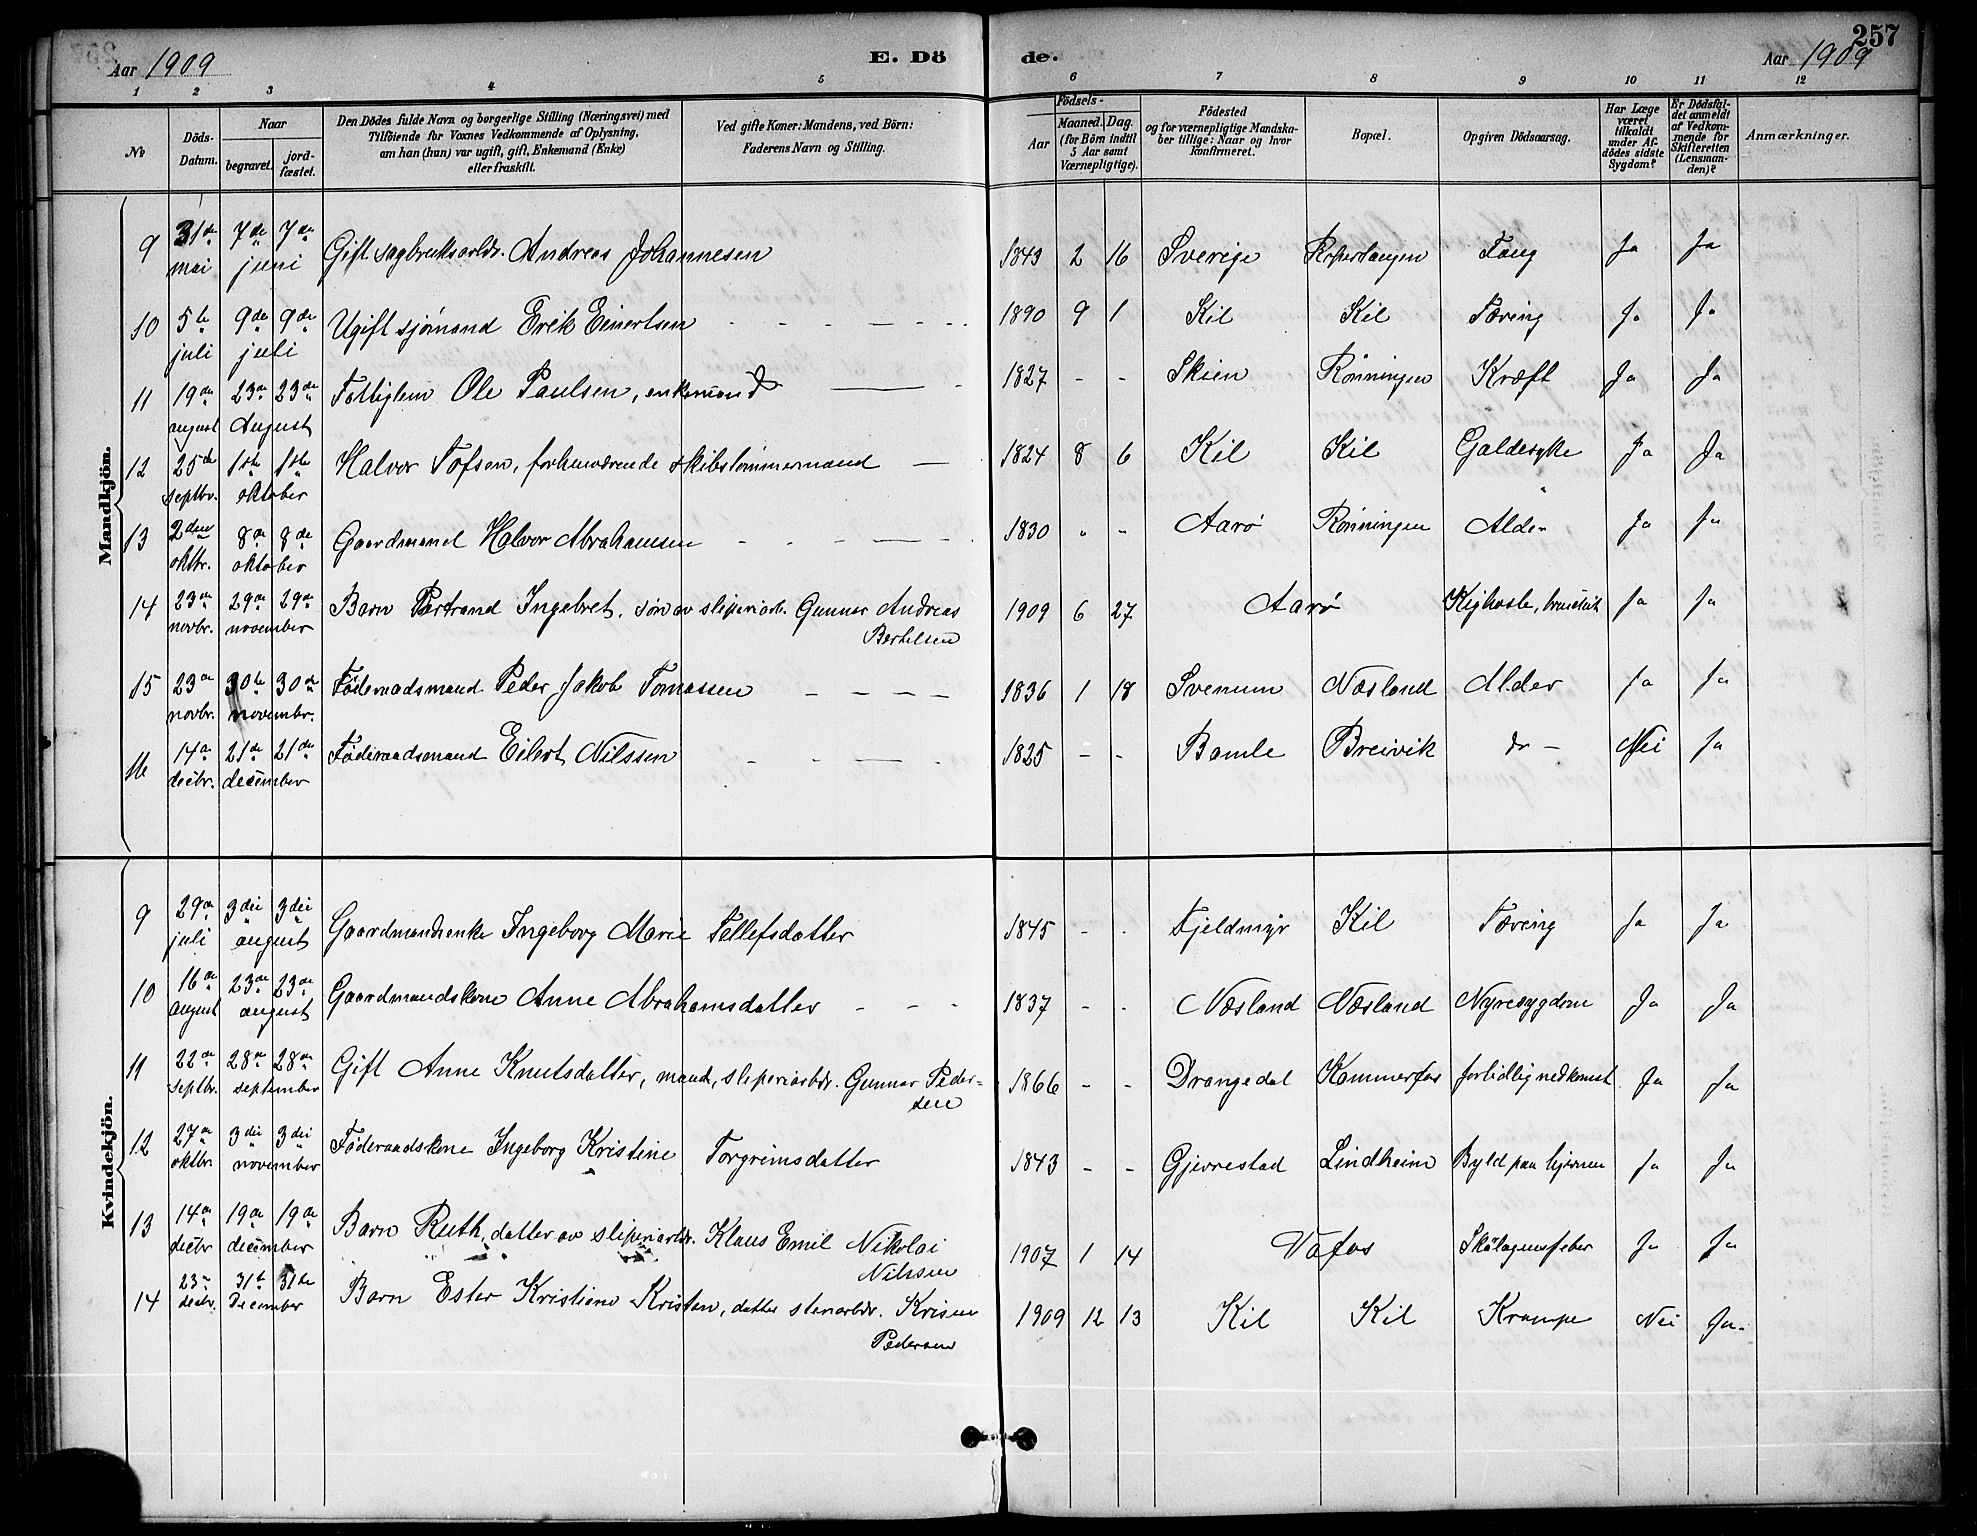 257
Aar 1909 E. Dö de. Aar 1909
1 2 3 4 5 6 7 8 9 10 11 12
№
Döds-
Datum.
Naar
begravet.
jord-
fæstet.
Den Dödes fulde Navn og borgerlige Stilling (Næringsvei) med
Tilföiende for Voxnes Vedkommende af Oplysning,
om han (hun) var ugift, gift, Enkemand (Enke)
eller fraskilt.
Ved gifte Koner: Mandens, ved Börn:
Faderens Navn og Stilling.
Födsels-
Aar
Maaned. Dag.
(for Börn indtil
5 Aar samt
Værnepligtige).
Födested
og for værnepligtige Mandska-
ber tillige: Naar og hvor
konfirmeret.
Bopæl.
Opgiven Dödsaarsag.
Har Læge
været
tilkaldt
under Af-
dödes sidste
Sygdom?
Er Dödsfal-
det anmeldt
af Vedkom-
mende for
Skifteretten
(Lensman-
den)?
Anmærkninger.
Mandkjön.
9 31te mai 7de 7de juni Gift sagbruksarbdr. Andreas Johannesen 1843 2 16 Sverige Ja Ja
10 5te juli 9de 9de juli Ugift sjömand Erik Einertsen 1890 9 1 Kil Kil Tæring Ja Ja
11 19de august 23de 23de August Fattiglem Ole Paulsen, enkemand 1827 - - Skien Rönningen Kræft Ja Ja
12 25de septbr. 1ste 1ste oktober Halvor Tofsen, forhenværende skibstömmermand 1824 8 6 Kil Kil Galdesyke Ja Ja
13 2den oktbr. 8de 8de oktober Gaardmand Halvor Abrahamsen 1830 " - Aarö Rönningen Alder Ja Ja
14 23de novbr. 29de 29de november Barn Bertrand Ingebret, sön av sliperiarb. Gunnar Andreas
Bertelsen 1909 6 27 Aarö Kighoste, Ja Ja
15 23de novbr. 30te 30te novembr. Föderaadsmand Peder Jakob Tomassen 1836 1 18 Svenum Næsland Alder Ja Ja
16 14de decbr. 21de 21de december Föderaadsmand Eilert Nilssen 1825 - - Bamle Breivik do - Nei Ja
Kvindekjön.
9 29de juli 3dei 3dei august Gaardmandsenke Ingeborg Marie Tellefsdatter 1845 - - Fjeldmyr Kil Tæring Ja Ja
10 16de august 23de 23de august Gaardmandskone Anne Abrahamsdatter 1837 - - Næsland Næsland Nyresygdom Ja Ja
11 22de septbr. 28de 28de september Gift Anne Knutsdatter, mand, sliperiarbdr. Gunnar Peder-
sen 1866 - - Drangedal Kammerfos fortidlig nedkomst Ja Ja
12 27de oktbr. 3dei 3dei november Föderaadskone Ingeborg Kristine Torgrimsdatter 1843 - - Gjerrestad Lindheim Byld paa hjernen Ja Ja
13 14de decbr 19de 19de december Barn Ruth, datter av sliperiarbdr. Klaus Emil Nikolai
Nilssen 1907 1 14 Vafos Skålagensfeber Ja Ja
14 23de decbr. 31te 31te December Barn Ester Kristiane datter stenarbdr.
Pedersen 1909 12 13 Kil Kil Krampe Nei Ja